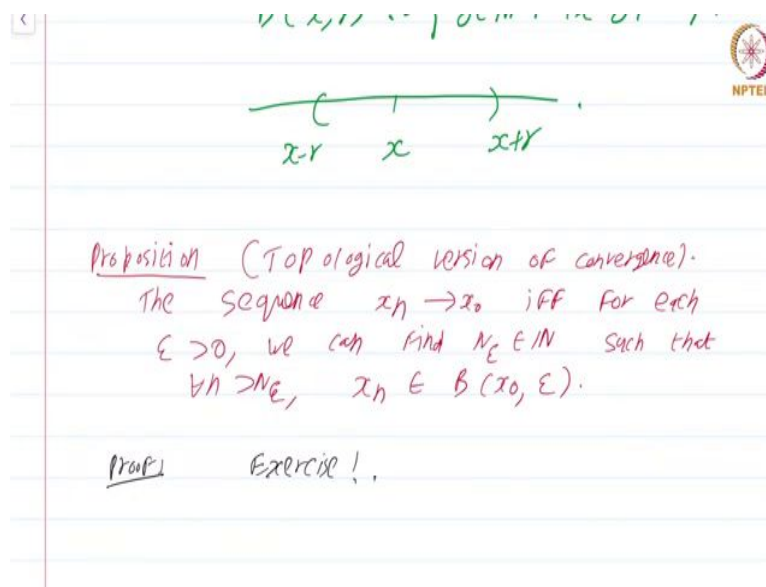 NPTEL
x-r x x+r
Proposition (Topological version of convergence).
The sequence xₙ → x₀ iff for each
ε > 0, we can find N_ε ∈ ℕ such that
∀n > N_ε, xₙ ∈ B(x₀, ε).
Proof: Exercise!.